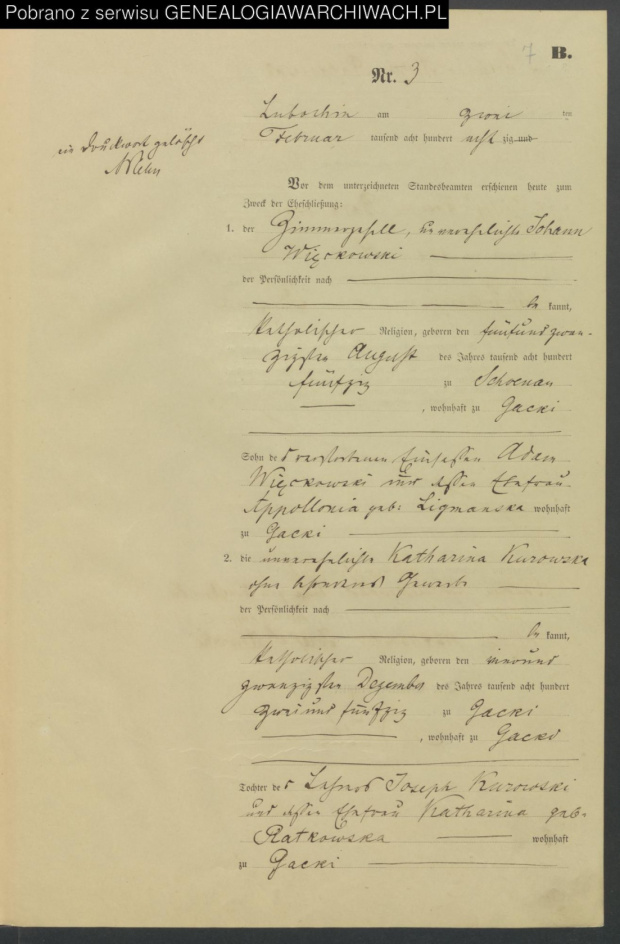 Pobrano z serwisu GENEALOGIAWARCHIWACH.PL
7 B.
Nr. 3
Lubochin am zwei ten
Februar tausend acht hundert acht zig und
ein Druckwort gelöscht
Vor dem unterzeichneten Standesbeamten erschienen heute zum
Zweck der Eheschließung:
1. der Zimmergesell, unverehelichte Johann
Więckowski
der Persönlichkeit nach
be kannt,
katholischer Religion, geboren den fünfundzwan-
zigsten August des Jahres tausend acht hundert
fünfzig zu Schoenau
, wohnhaft zu Gacki
Sohn des verstorbenen Einsassen Adam
Więckowski und dessen Ehefrau
Appollonia geb: Ligmanska wohnhaft
zu Gacki
2. die unverehelichte Katharina Kurowska
ohne besonderes Gewerbe
der Persönlichkeit nach
be kannt,
katholischer Religion, geboren den
zwanzigsten Dezember des Jahres tausend acht hundert
zwei und fünfzig zu Gacki
, wohnhaft zu Gacki
Tochter des Joseph Kurowski
und dessen Ehefrau Katharina geb.
Ratkowska wohnhaft
zu Gacki